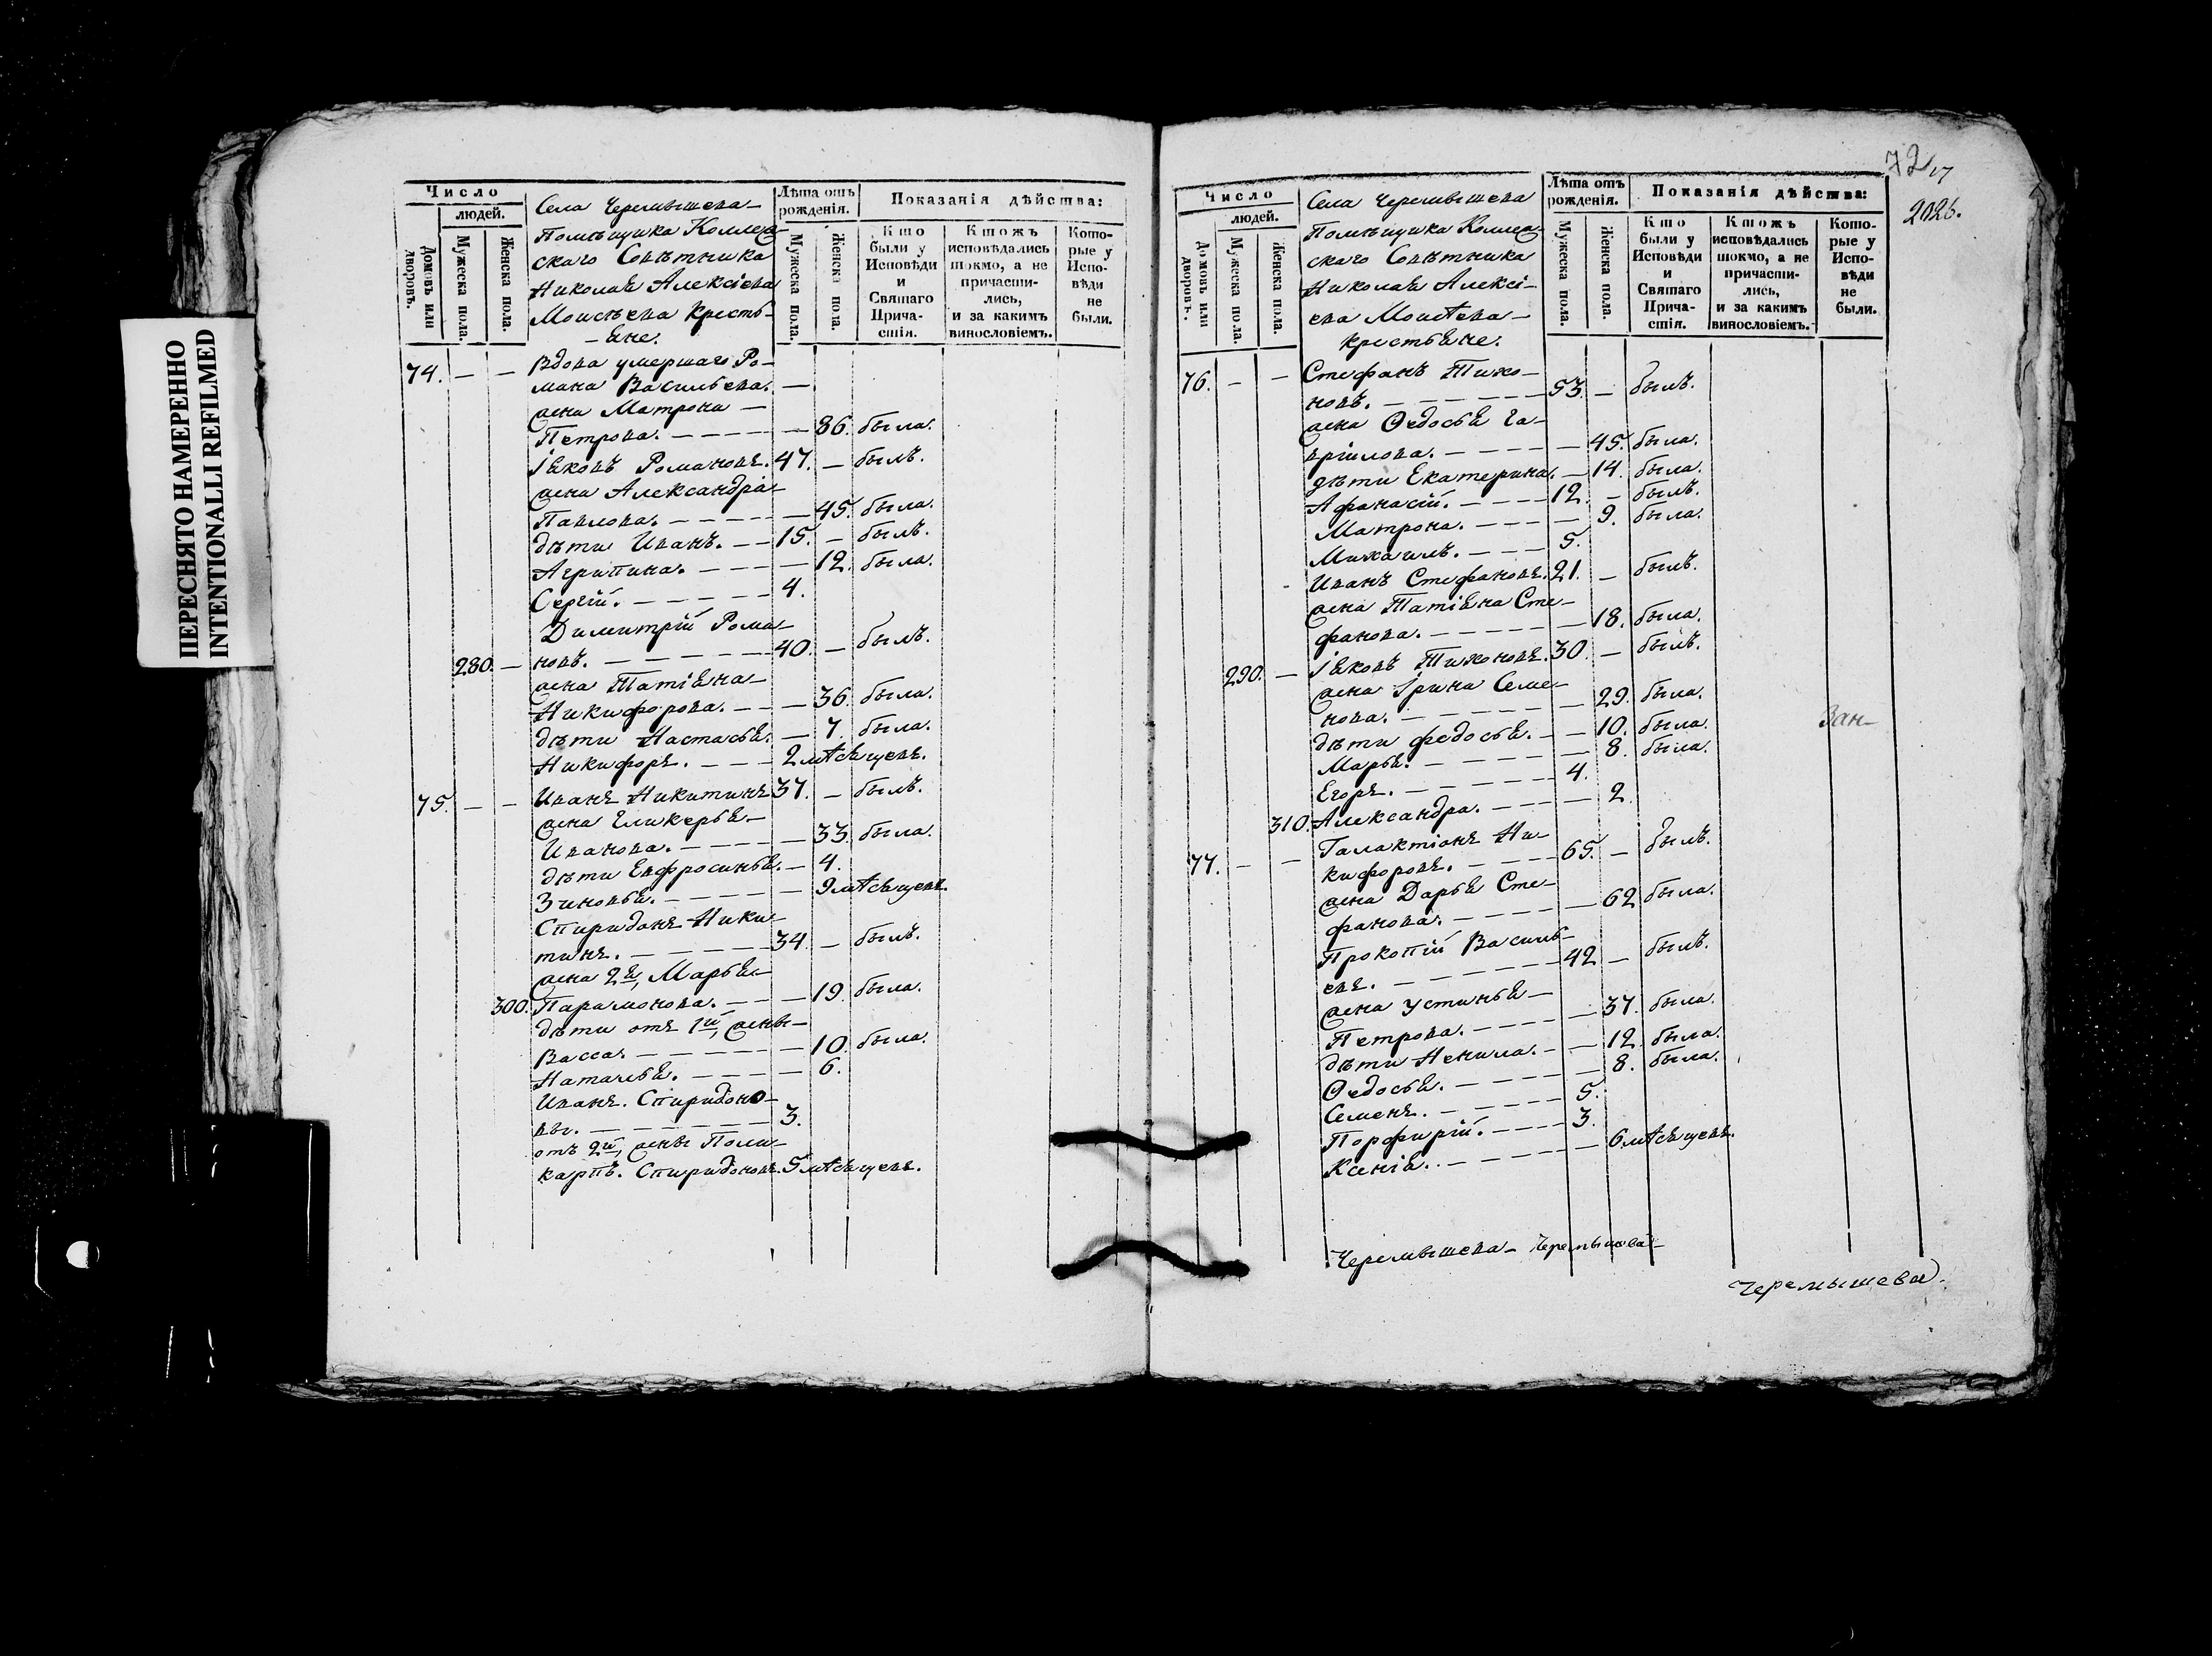 ПЕРЕСНЯТО НАМЕРЕННО
INTENTIONALLI REFILMED
Число
людей.
Домовъ или дворовъ.
Мужеска пола.
Женска пола.
Села Черемышева
Помѣщика Коллеж-
скаго Совѣтника
Николая Алексіева
Моисѣева Кресть-
яне.
Лѣта отъ рожденія.
Мужеска пола.
Женска пола.
Показанія дѣйства:
Кто были у Исповѣди и Святаго Прича-стія.
Ктожъ исповѣдались токмо, а не причасти-лись, и за какимъ винословіемъ.
Кото-рые у Испо-вѣди не были.
74. — — Вдова умершаго Ро-
мана Васильева. —
жена Матрона —
Петрова. — 86. была.
Іяковъ Романовъ. 47. — былъ.
жена Александра
Павлова. — 45. была.
дѣти Иванъ. — 15. — былъ.
Агрипина. — 12. была.
Сергій. — 4.
Димитрій Рома-
280. — новъ. — 40. — былъ.
жена Татіяна
Никифорова. — 36. была.
дѣти Настасья. — 7. была.
Никифоръ. — 2 мѣсяцевъ.
75. — — Иванъ Никитинъ 37. — былъ.
жена Гликерья
Иванова. — 33. была.
дѣти Евфросинья. — 4.
Зиновья. — 9 мѣсяцевъ.
Спиридонъ Ники-
тинъ. — 34 — былъ.
жена 2я, Марья
300. Парамонова. — 19. была.
дѣти отъ 1й, жены
Васса. — 10. была.
Наталья. — 6.
Иванъ. Спиридоно-
вы. — 3.
отъ 2й, жены Поли-
карпъ. Спиридоновъ. 5 мѣсяцевъ.
72
17
2026.
Число
людей.
Домовъ или дворовъ.
Мужеска пола.
Женска пола.
Села Черемышева
Помѣщика Коллеж-
скаго Совѣтника
Николая Алексі-
ева Моисѣева
крестьяне.
Лѣта отъ рожденія.
Мужеска пола.
Женска пола.
Показанія дѣйства:
Кто были у Исповѣди и Святаго Прича-стія.
Ктожъ исповѣдались токмо, а не причасти-лись, и за какимъ винословіемъ.
Кото-рые у Испо-вѣди не были.
76. — — Стефанъ Тихо-
новъ. — 53. — былъ.
жена Ѳедосья Га-
вріилова. — 45. была.
дѣти Екатерина. — 14. была.
Афанасій. — 12. — былъ.
Матрона. — 9. была.
Михаилъ. — 5.
Иванъ Стефановъ. 21. — былъ.
жена Татіяна Сте-
фанова. — 18. была.
290. — Іяковъ Тихоновъ. 30. — былъ.
жена Ірина Семе-
нова. — 29. была.
дѣти федосья. — 10. была.
Марья. — 8. была.
Егоръ. — 4.
310. Александра. — 2.
77. — — Галактіонъ Ни-
кифоровъ. — 65. — былъ.
жена Дарья Сте-
фанова. — 62 была.
Прокопій Василь-
евъ. — 42 — былъ.
жена Устинья
Петрова. — 37. была.
дѣти Ненила. — 12 была.
Ѳедосья. — 8. была.
Семенъ. — 5.
Порфирій. — 3.
Ксенія. — 6 мѣсяцевъ.
Зан-
Черемышева — Черемышева
Черемышева.